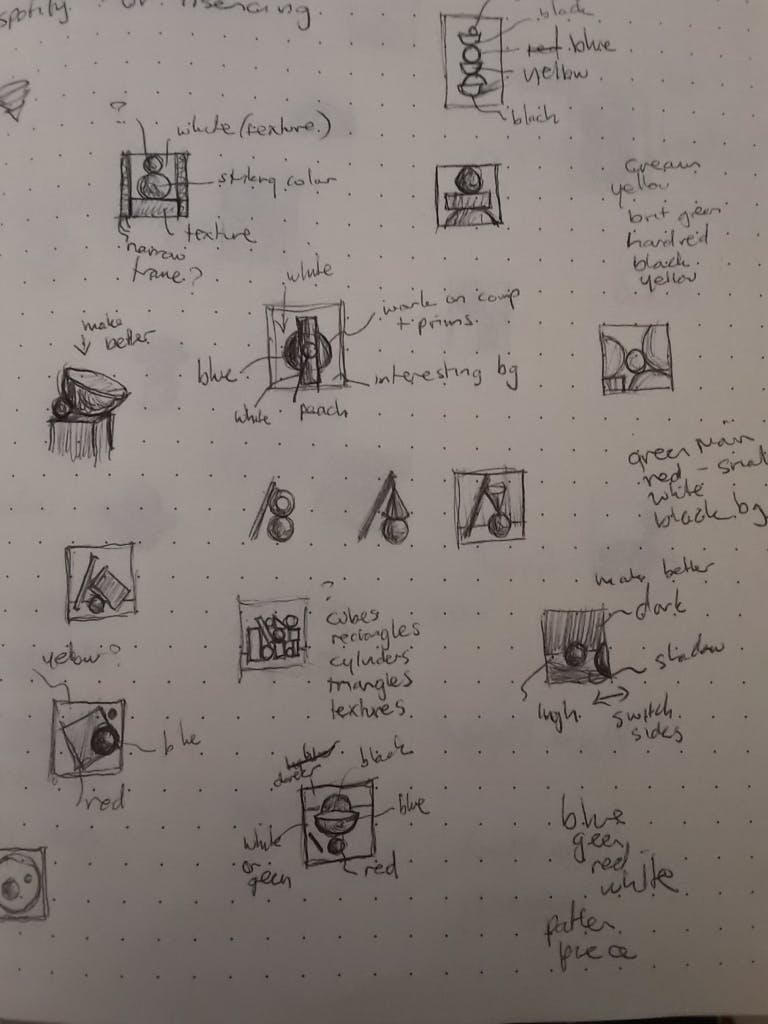 spotify
black
red blue
yellow
black
?
white (texture)
striking color
texture
narrow
frame?
cream
yellow
brit green
hard red
black
yellow
white
work on comp
+ prims.
blue
interesting bg
white
peach
make
better
green main
red -
white
black bg
make better
dark
shadow
switch
sides
?
cubes
rectangles
cylinders
triangles
textures
yellow?
blue
red
black
blue
white
or
green
red
blue
green
red
white
piece